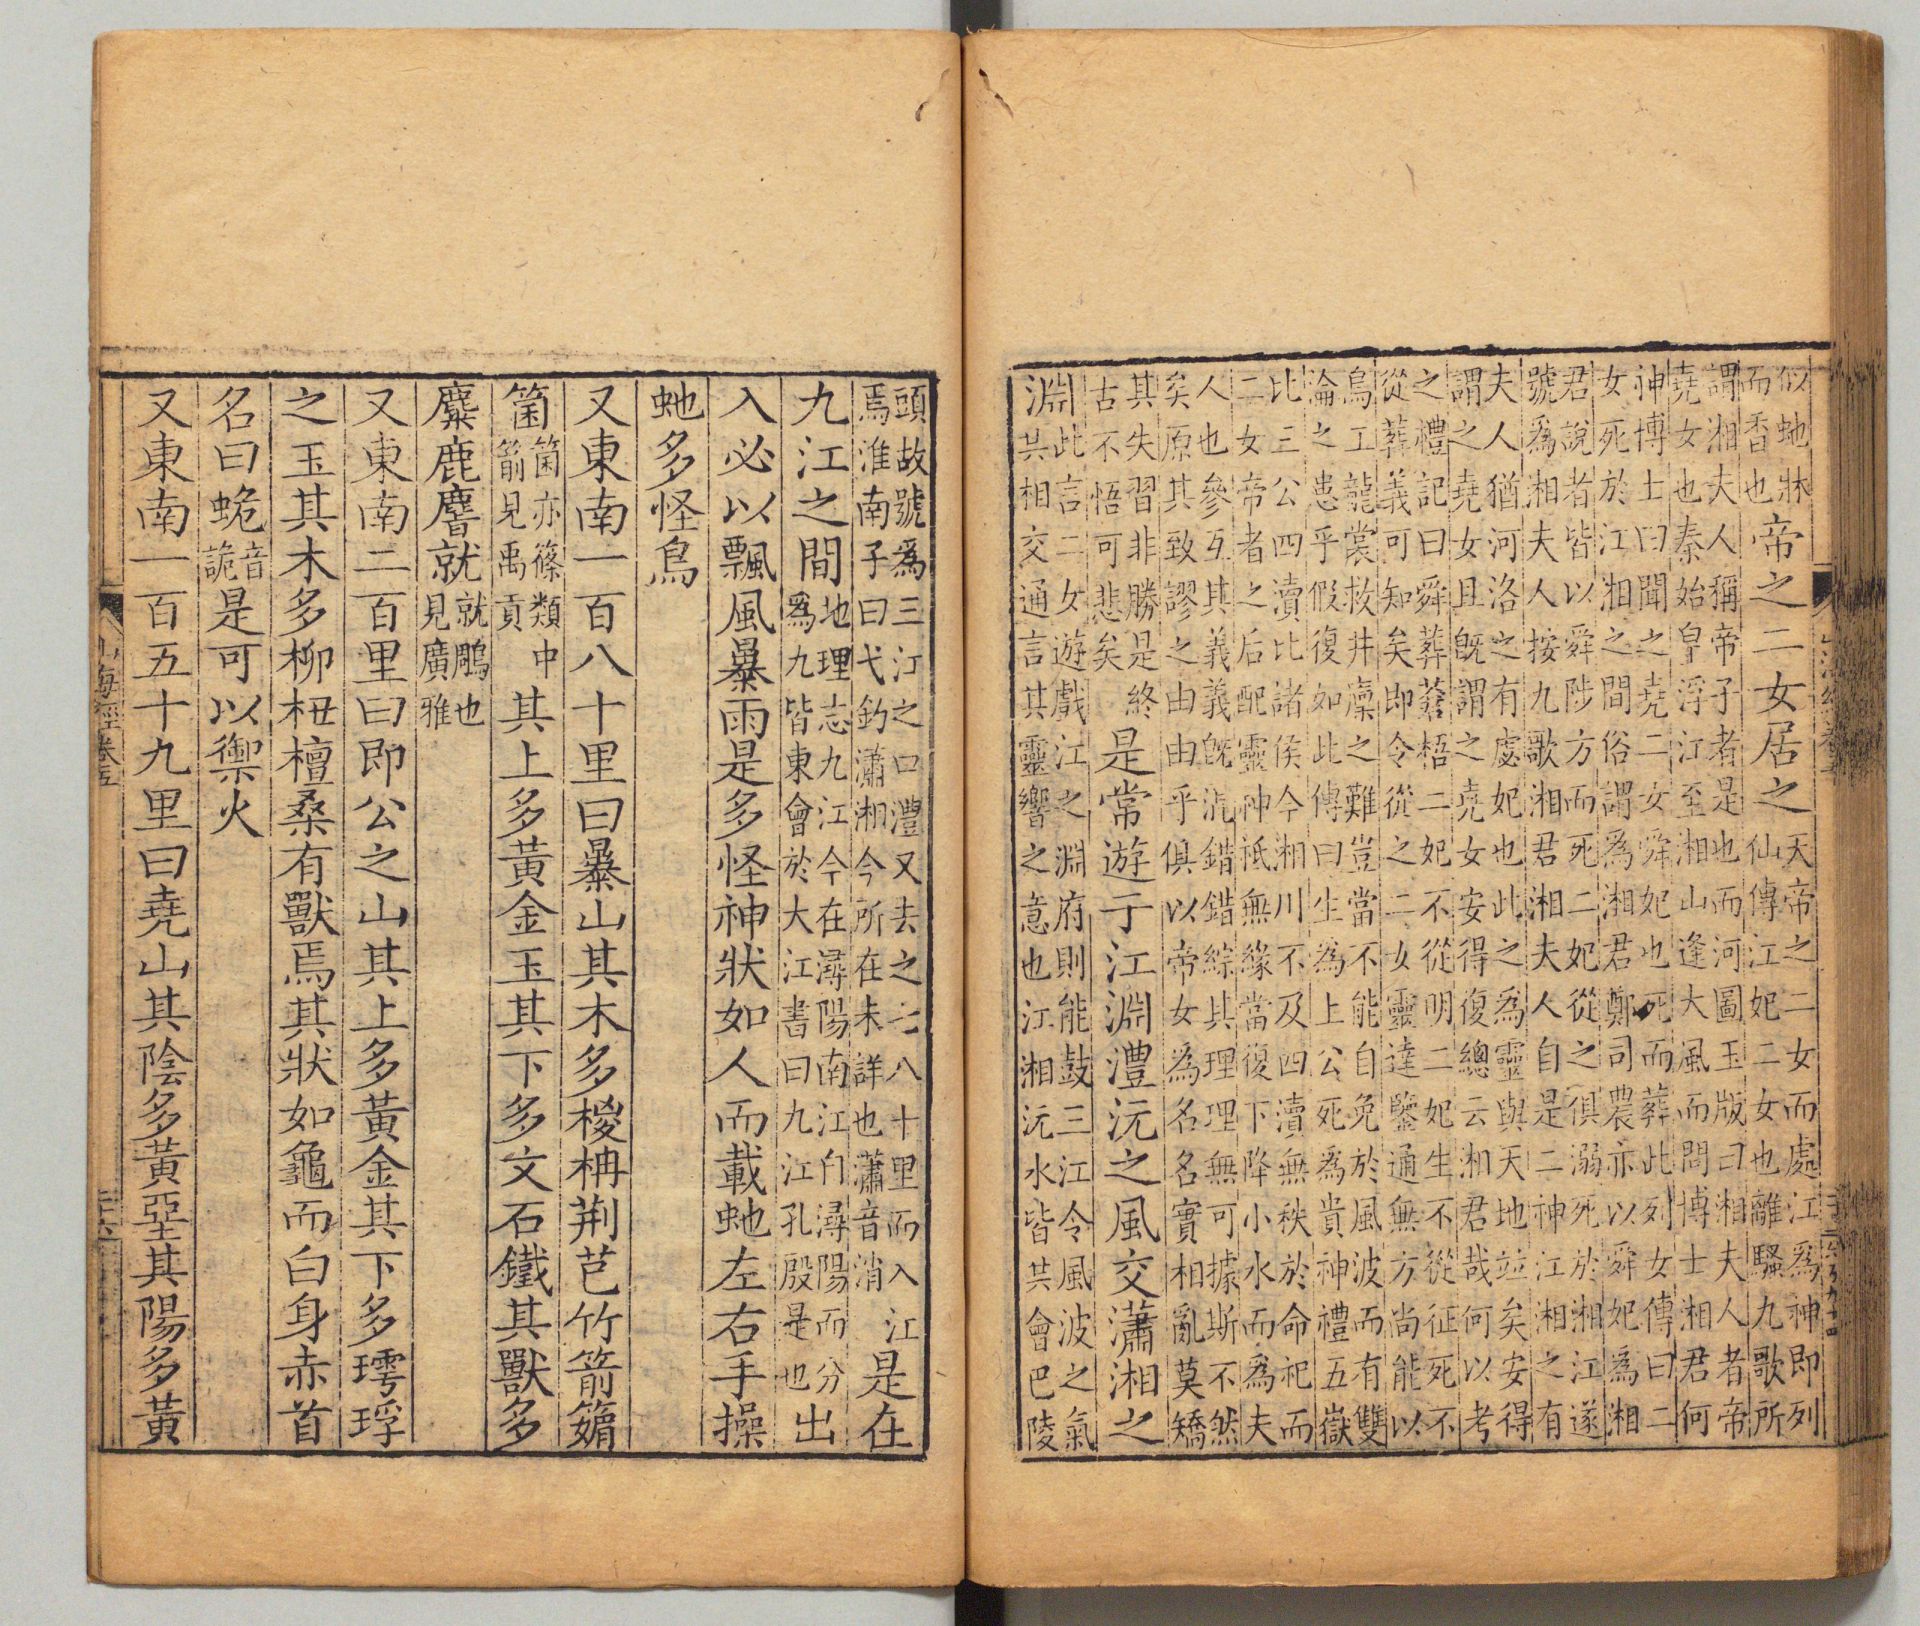 似虵牀
而香也
帝之二女居之
天帝之二女而處江爲神即列
仙傳江妃二女也離騷九歌所
謂湘夫人稱帝子者是也而河圖玉版曰湘夫人者帝
堯女也秦始皇浮江至湘山逢大風而問博士湘君何
神博士曰聞之堯二女舜妃也死而葬此列女傳曰二
女死於江湘之間俗謂爲湘君鄭司農亦以舜妃爲湘
君說者皆以舜陟方而死二妃從之俱溺死於湘江遂
號爲湘夫人按九歌湘君湘夫人自是二神江湘之有
夫人猶河洛之有處妃也此之爲靈與天地並矣安得
謂之堯女且旣謂之堯女安得復總云湘君哉何以考
之禮記曰舜葬蒼梧二妃不從明二妃生不從征死不
從葬義可知矣即令從之二女靈達鑒通無方尚能以
鳥工龍裳救井廩之難豈當不能自免於風波而有雙
淪之患乎假復如此傳曰生爲上公死爲貴神禮五嶽
比三公四瀆比諸侯今湘川不及四瀆無秩於命祀而
二女帝者之后配靈神祗無緣當復下降小水而爲夫
人也參互其義義旣混錯錯綜其理理無可據斯不然
矣原其致謬之由由乎俱以帝女爲名名實相亂莫矯
其失習非勝是終
古不悟可悲矣
是常遊于江淵澧沅之風交瀟湘之
淵
此言二女遊戲江之淵府則能鼓三江令風波之氣
共相交通言其靈響之意也江湘沅水皆共會巴陵
頭故號爲三江之口澧又去之七八十里而入江
焉淮南子曰弋釣瀟湘今所在未詳也瀟音消
是在
九江之間
地理志九江今在潯陽南江自潯陽而分
爲九皆東會於大江書曰九江孔殷是也
出
入必以飄風暴雨是多怪神狀如人而載虵左右手操
虵多怪鳥
又東南一百八十里曰暴山其木多椶枏荆芑竹箭䉋
箘
箘亦篠類中
箭見禹貢
其上多黃金玉其下多文石鐵其獸多
麋鹿麐就
就鵰也
見廣雅
又東南二百里曰即公之山其上多黃金其下多㻬琈
之玉其木多柳杻檀桑有獸焉其狀如龜而白身赤首
名曰蛫
音
詭
是可以禦火
又東南一百五十九里曰堯山其陰多黃堊其陽多黃
山海經卷五